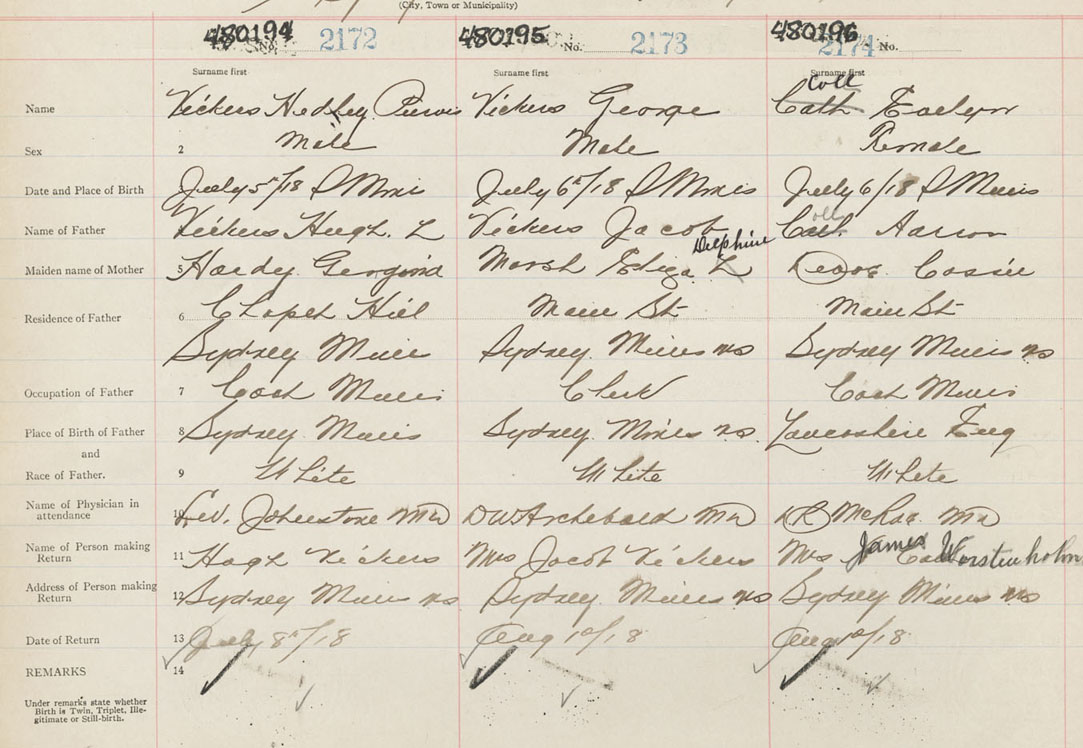 (City, Town or Municipality)
480194 No. 2172 480195 No. 2173 480196 2174 No.
Surname first Surname first Surname first
Coll
Name Vickers Hedley Purvis Vickers George Cath Evelyn
Sex 2 Male Male Female
Date and Place of Birth July 5th/18 S Mines July 6th/18 S Mines July 6/18 S Mines
oll
Name of Father Vickers Hugh. L Vickers Jacob Cath. Aaron
Delphine
Maiden name of Mother 5 Hardy Marsh Eliza L Cassie
Residence of Father 6 Chapel Hill Main St. Main St
Sydney Mines Sydney Mines ns Sydney Mines ns
Occupation of Father 7 Coal Miner Clerk Coal Miner
Place of Birth of Father 8 Sydney Mines Sydney Mines ns. Lancashire Eng
and
Race of Father. 9 White White White
Name of Physician in attendance 10 Johnstone MD DW Archibald MD McRae MD
Name of Person making Return 11 Hugh Vickers Mrs Jacob Vickers Mrs James Worstenholm
Address of Person making Return 12 Sydney Mines ns Sydney Mines ns Sydney Mines ns
Date of Return 13 July 8th/18 Aug 10/18 Aug 10/18
REMARKS 14
Under remarks state whether
Birth is Twin, Triplet, Ille-
gitimate or Still-birth.